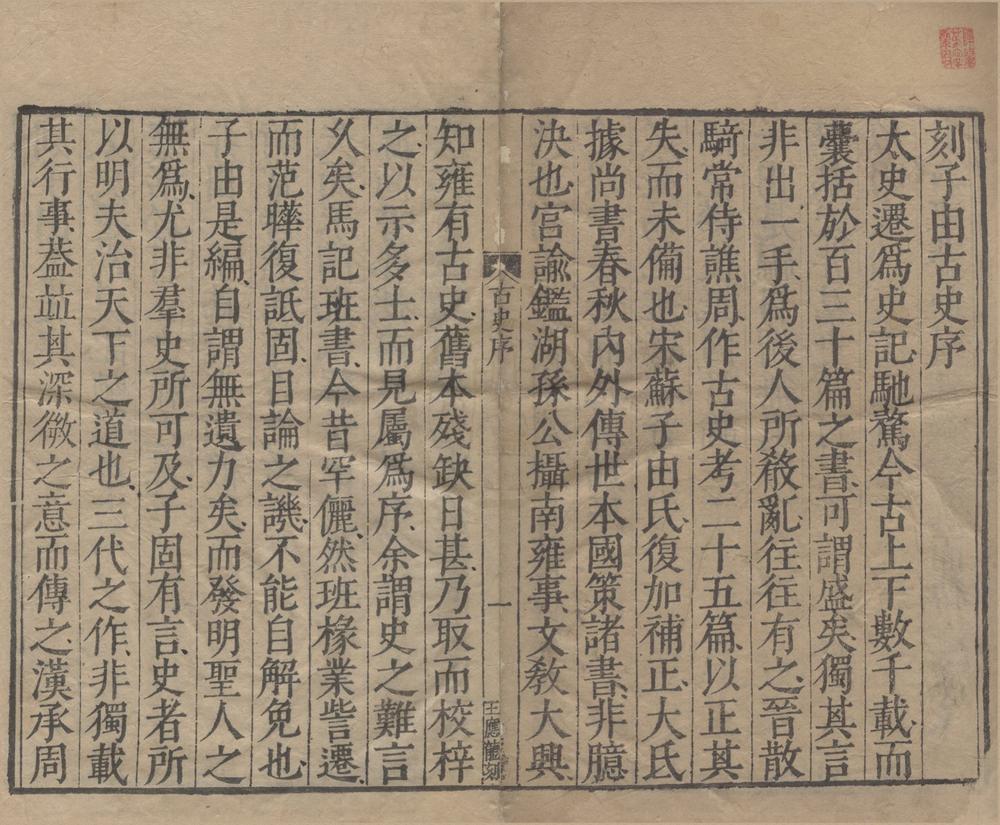 刻子由古史序
太史遷爲史記馳騖今古上下數千載而
囊括於百三十篇之書可謂盛矣獨其言
非出一手爲後人所殽亂往往有之晉散
騎常侍譙周作古史考二十五篇以正其
失而未備也宋蘇子由氏復加補正大氐
據尚書春秋內外傳世本國策諸書非臆
決也宮諭鑑湖孫公攝南雍事文敎大興
古史序
一
王應龍刻
知雍有古史舊本殘缺日甚乃取而校梓
之以示多士而見屬爲序余謂史之難言
久矣馬記班書今昔罕儷然班椽業訾遷
而范曄復詆固目論之譏不能自解免也
子由是編自謂無遺力矣而發明聖人之
無爲尤非羣史所可及子固有言史者所
以明夫治天下之道也三代之作非獨載
其行事葢竝其深微之意而傳之漢承周